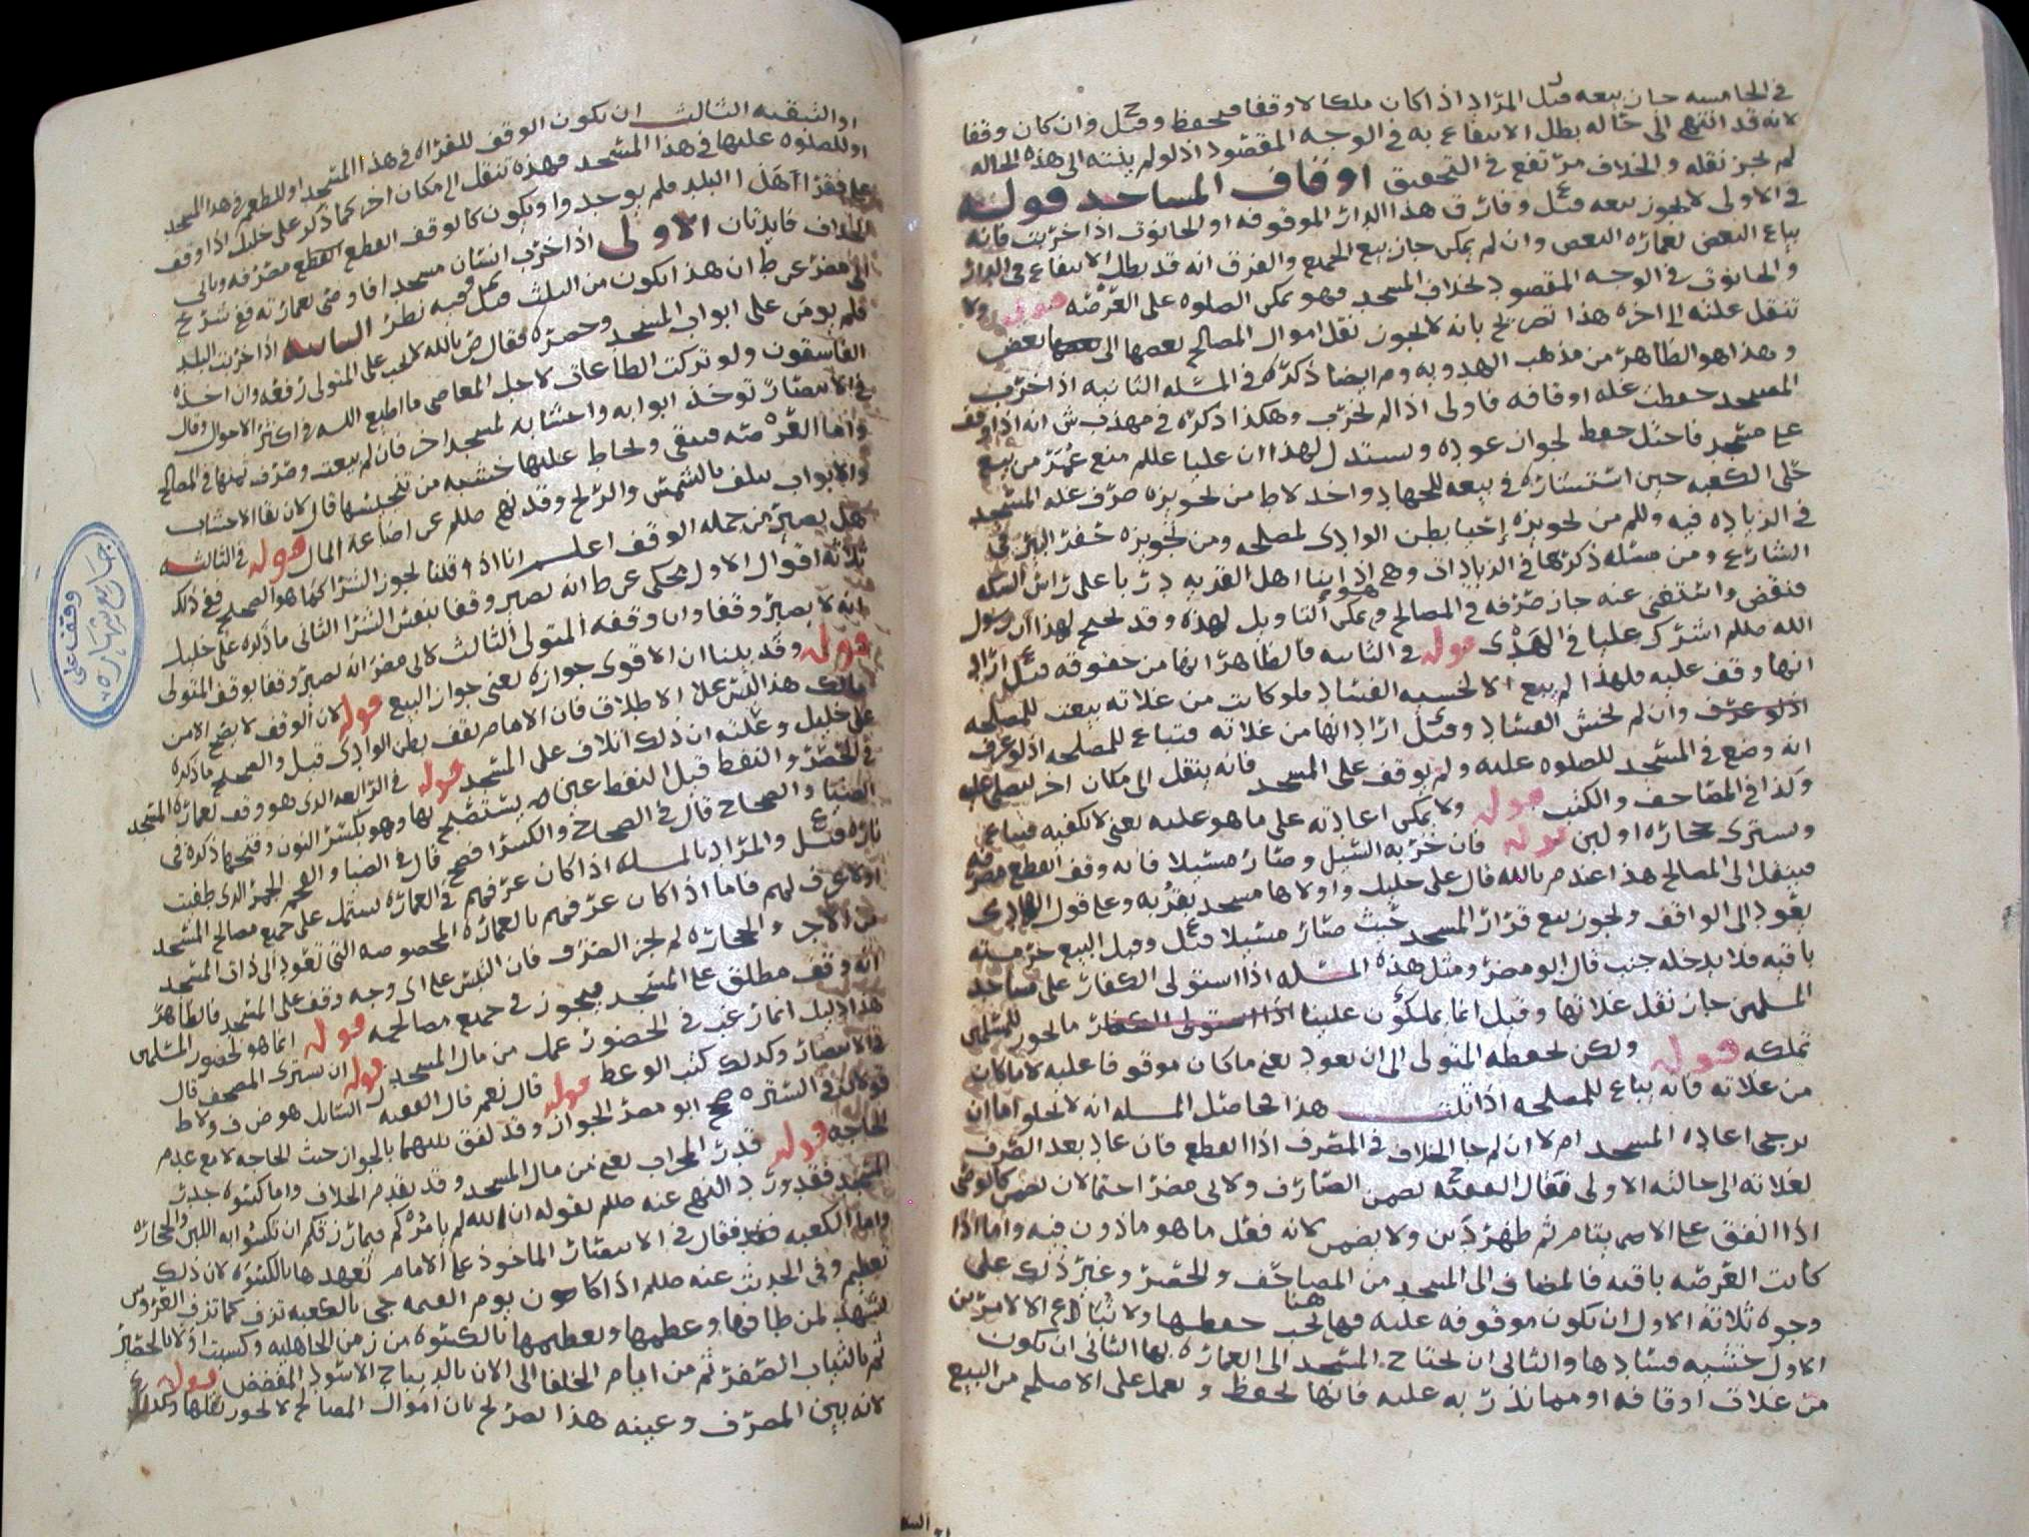 في الخامسه جاز بيعه قيل المراد اذا كان ملكا لا وقفا فيحفظ وقيل وان كان وقفا
لانه قد انتهى الى حاله بطل الانتفاع به في الوجه المقصود اذ لو لم ينته الى هذه الحاله
لم يجز نقله والخلاف مرتفع في التحقيق اوقاف المساجد قوله
في الاولى لا يجوز بيعه قيل وفارق هذا الدار الموقوفه او الحانوت اذا خربت فانه
يباع البعض لعماره البعض وان لم يمكن جاز بيع الجميع والفرق انه قد بطل الانتفاع في الدار
والحانوت في الوجه المقصود بخلاف المسجد فهو يمكن الصلوه على العرصه قوله ولا
تنقل علته الى اخره هذا تصريح بانه لا يجوز نقل اموال المصالح بعضها الى بعض
وهذا هو الظاهر من مذهب الهدويه ومر ايضا ذكره في المسله الثانيه اذا خرب
المسجد حفظت غله اوقافه فاولى اذا لم يخرب وهكذا ذكره في مهذب ش انه اذا وقف
على مسجد فاختل حفظ لجواز عوده ويستدل لهذا ان عليا عللم منع عمر من بيع
حلى الكعبه حين استشاره في بيعه للجهاد واخذ لاط من تجويزه صرف غله المسجد
في الزياده فيه وللم من تجويزه إحيا بطن الوادى لمصلحه ومن تجويزه حفر البير في
الشارع ومن مسله ذكرها في الزيادات وهي اذا بنا اهل القريه دربا على راس السكه
فنقض واستغنى عنه جاز صرفه في المصالح ويمكن التاويل لهذه وقد يحتج لهذا ان رسول
الله صللم اشرك عليا في الهدى قوله في الثانيه فالظاهر انها من حقوقه قيل اراد
انها وقف عليه فلهذا لم يبع الا لخشيه الفساد فلو كانت من غلاته بيعت للمصلحه
وان لم يخش الفساد وقيل اراد انها من غلاته فتباع للمصلحه اذ لو عرف
انه وضع في المسجد للصلوه عليه ولم يوقف على المسجد فانه ينقل الى مكان اخر ليصلى عليه
وكذا في المصاحف والكتب قوله ولا يمكن اعادته على ما هو عليه يعنى لا تكفيه فيباع
ويشترى حجاره او لبن قوله فان خربه السيل وصار مسيلا فانه وقف انقطع مصرفه
فينقل الى المصالح هذا عند م بالله قال على خليل واولاها مسجد بقربه وعلى قول الهادى
يعود الى الواقف ويجوز بيع قرار المسجد حيث صار مسيلا قيل وقبل البيع حرمته
باقيه فلا يدخله جنب قال ابو مضر ومثل هذه المسله اذا استولى الكفار على مساجد
المسلمين جاز نقل غلاتها وقيل انما يملكون علينا ما يجوز للمسلمين
تملكه قوله ولكن يحفظه المتولى الى ان يعود يعنى ما كان موقوفا عليه لا ما كان
من غلاته فانه يباع للمصلحه هذا حاصل المسله انه لا يخلو اما ان
يرجى اعاده المسجد ام لا ان لم جا الخلاف في المصرف اذا انقطع فان عاد بعد الصرف
لغلاته الى حالته الاولى فقال الفقيه يضمن الصارف ولابي مضر احتمالان يضمن كالوصى
اذا انفق على الاصم يتامى ثم ظهر دين ولا يضمن لانه فعل ما هو ماذون فيه واما اذا
كانت العرصه باقيه فالمضاف الى المسجد من المصاحف والحصر وغير ذلك على
وجوه ثلاثه الاول ان يكون موقوفه عليه فهاهنا يجب حفظها ولا تباع الا لامرين
الاول خشيه فسادها والثانى ان يحتاج المسجد الى العماره بها الثاني ان يكون
من غلات اوقافه او مما نذر به عليه فانها تحفظ ويعمل على الاصلح من البيع
او التبقيه الثالث ان يكون الوقف للقراه في هذا المسجد او للمطعم في هذا المسجد
او للصلوه عليها في هذا المسجد فهذه تنقل الى مكان اخر كما ذكر على خليل اذا وقف
على فقرا اهل البلد فلم يوجدوا ويكون كالوقف انقطع مصرفه وياتي
الخلاف فايدتان الاولى اذا خرب انسان مسجدا فاوصى بعمارته فع شرع
ابي مضر عن ط ان هذا يكون من الثلث قيل وفيه نظر الثانيه اذا خربت البلد
فلم يومن على ابواب المسجد وحصره فقال ض بالله لا يجب على المتولى رفعه وان اخذه
الفاسقون ولو تركت الطاعات لاجل المعاصي ما اطيع الله في اكثر الاحوال وقال
في الانتصار توخذ ابوابه واخشابه لمسجد اخر فان لم بيعت وصرف ثمنها في المصالح
واما العرصه فتبقى ويحاط عليها خشيه من تنجيسها قال لان بقا الاخشاب
والابواب يتلف بالشمس والريح وقد نهى صللم عن اضاعه المال قوله في الثالثه
هل يصير من جمله الوقف اعلم انا اذا قلنا يجوز الشرا كما هو الصحيح ففي ذلك
ثلاثه اقوال الاول يحكى عن ط انه يصير وقفا بنفس الشرا الثاني ما ذكره على خليل
انه لا يصير وقفا وان وقفه المتولى الثالث لابي مضر انه يصير وقفا بوقف المتولى
قوله وقد بينا ان الاقوى جوازه يعنى جواز البيع قوله لان الوقف لا يصح الا من
مالك هذا ليس على الاطلاق فان الامام يقف بطن الوادى قيل والصحيح ما ذكره
على خليل وعلته ان ذلك اتلاف على المسجد قوله في الرابعه الذى هو وقف لعماره المسجد
في الحصر والنفط قبل النفط عين يستصبح بها وهو بكسر النون وفتحها ذكره في
الضيا والصحاح قال في الصحاح والكسر افصح قال في الضيا والفحم الجمر الذى طفيت
ناره قيل والمراد بالمسله اذا كان عرفهم في العماره يشتمل على جميع مصالح المسجد
او لا عرف لهم فاما اذا كان عرفهم بالعماره المخصوصه التي تعود الى ذات المسجد
من الاجر والحجاره لم يجز الصرف فان التبس على اى وجه وقف على المسجد فالظاهر
انه وقف مطلق على المسجد فيجوز في جميع مصالحه قوله انما هو لحضور المسلمين
هذا دليل انما رغب في الحضور عمل من مال المسجد قوله ان يشترى المصحف قال
في الانتصار وكذلك كتب الوعظ قوله قال نعم قال الفقيه السائل هو ض ف ولاط
قولان في الستره صحح ابو مضر الجواز وقد لفق بينهما بالجواز حيث الحاجه لا مع عدم
الحاجه قوله قدر المحراب يعنى من مال المسجد وقد تقدم الخلاف واما كسوه جدر
المسجد فقد ورد النهى عنه صللم بقوله ان الله لم يامركم فيما رزقكم ان تكسوا به اللبن والحجاره
واما الكعبه فقال في الانتصار الماخوذ على الامام تعهدها بالكسوه لان ذلك
تعظيم وفي الحديث عنه صللم اذا كان يوم القيمه جي بالكعبه تزف كما تزف العروس
تشهد لمن طاف بها وعظمها وتعظيمها بالكسوه من زمن الجاهليه وكسيت اولا بالحصير
ثم بالثياب الصفر ثم من ايام الخلفا الى الان بالديباج الاسود المفضض قوله
لانه بين المصرف وعينه هذا تصريح بان اموال المصالح لا يجوز نقلها
وقف على